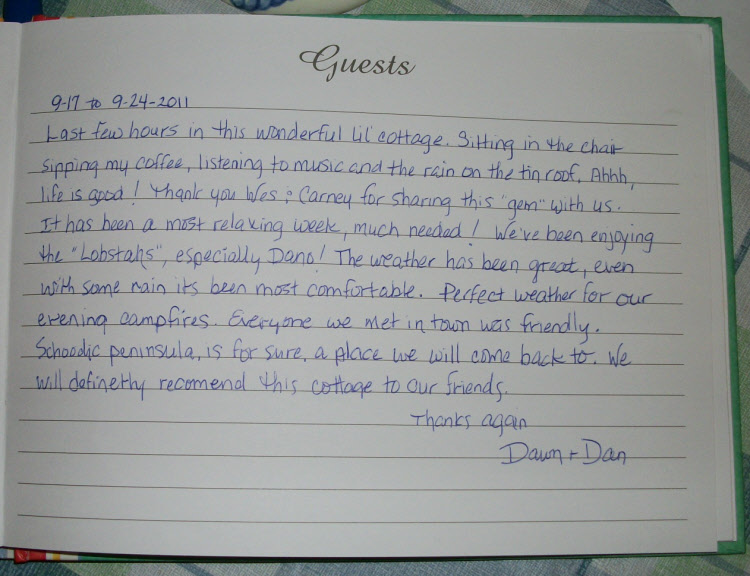 Guests
9-17 to 9-24-2011
Last few hours in this wonderful Lil' cottage. Sitting in the chair
sipping my coffee, listening to music and the rain on the tin roof. Ahhh,
life is good! Thank you Wes & Carney for sharing this "gem" with us.
It has been a most relaxing week, much needed! We've been enjoying
the "Lobstahs", especially Dano! The weather has been great, even
with some rain its been most comfortable. Perfect weather for our
evening campfires. Everyone we met in town was friendly.
Schoodic peninsula, is for sure, a place we will come back to. We
will definetly recomend this cottage to our friends.
Thanks again
Dawn + Dan